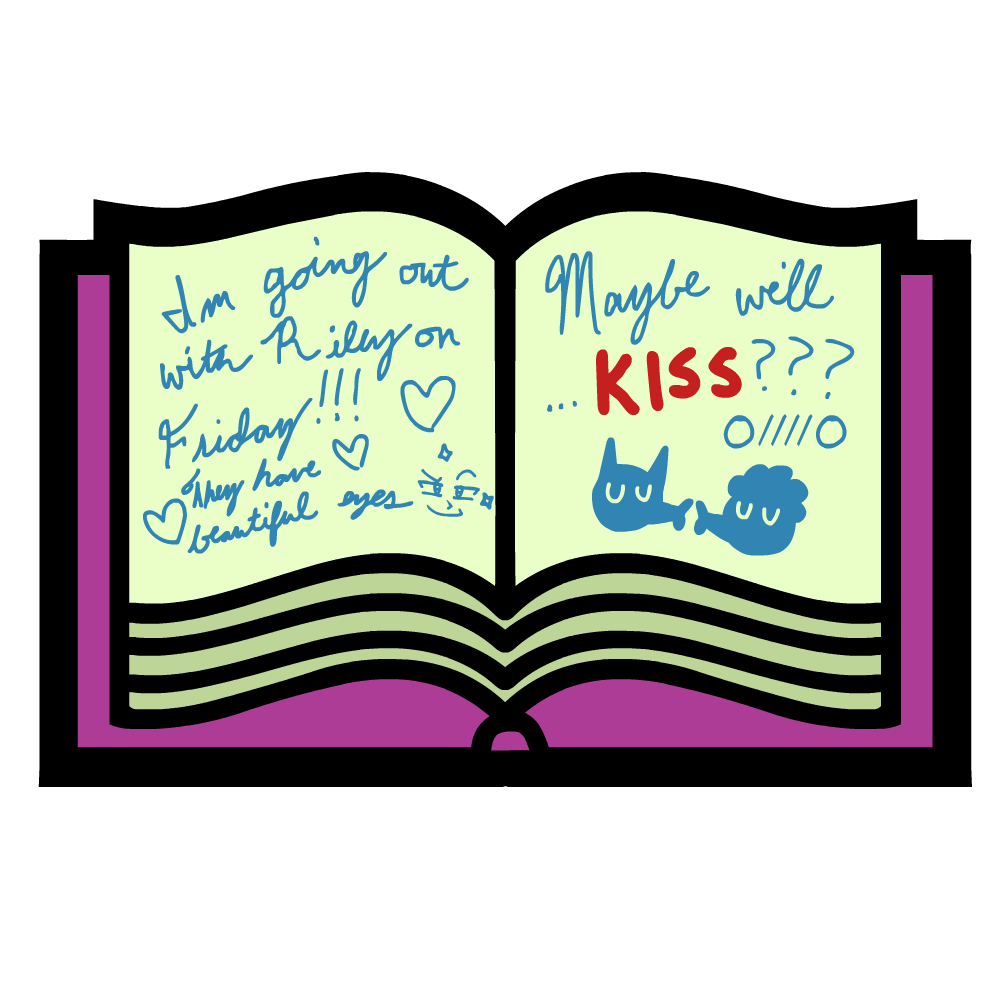 Im going out
with Riley on
Friday!!!
They have
beautiful eyes
Maybe we'll
... KISS???
O/////O